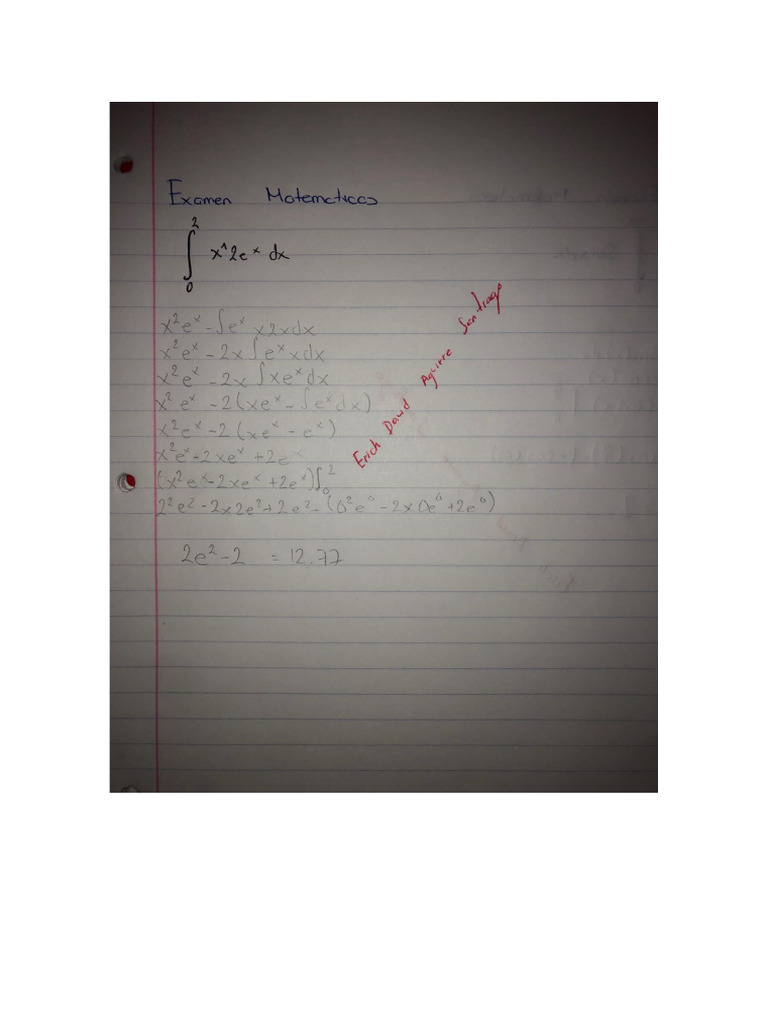 Examen Matematicas
2
∫ x^2e^x dx
0
x²e^x - ∫e^x x2xdx
x²e^x - 2x∫e^x xdx
x²e^x - 2x∫xe^x dx
x²e^x - 2(xe^x - ∫e^x dx)
x²e^x - 2(xe^x - e^x)
x²e^x - 2xe^x + 2e^x
(x²e^x - 2xe^x + 2e^x)∫₀²
2²e² - 2x2e² + 2e² - (0²e⁰ - 2x0e⁰ + 2e⁰)
2e² - 2 = 12.77
Erich David Aguirre Santiago